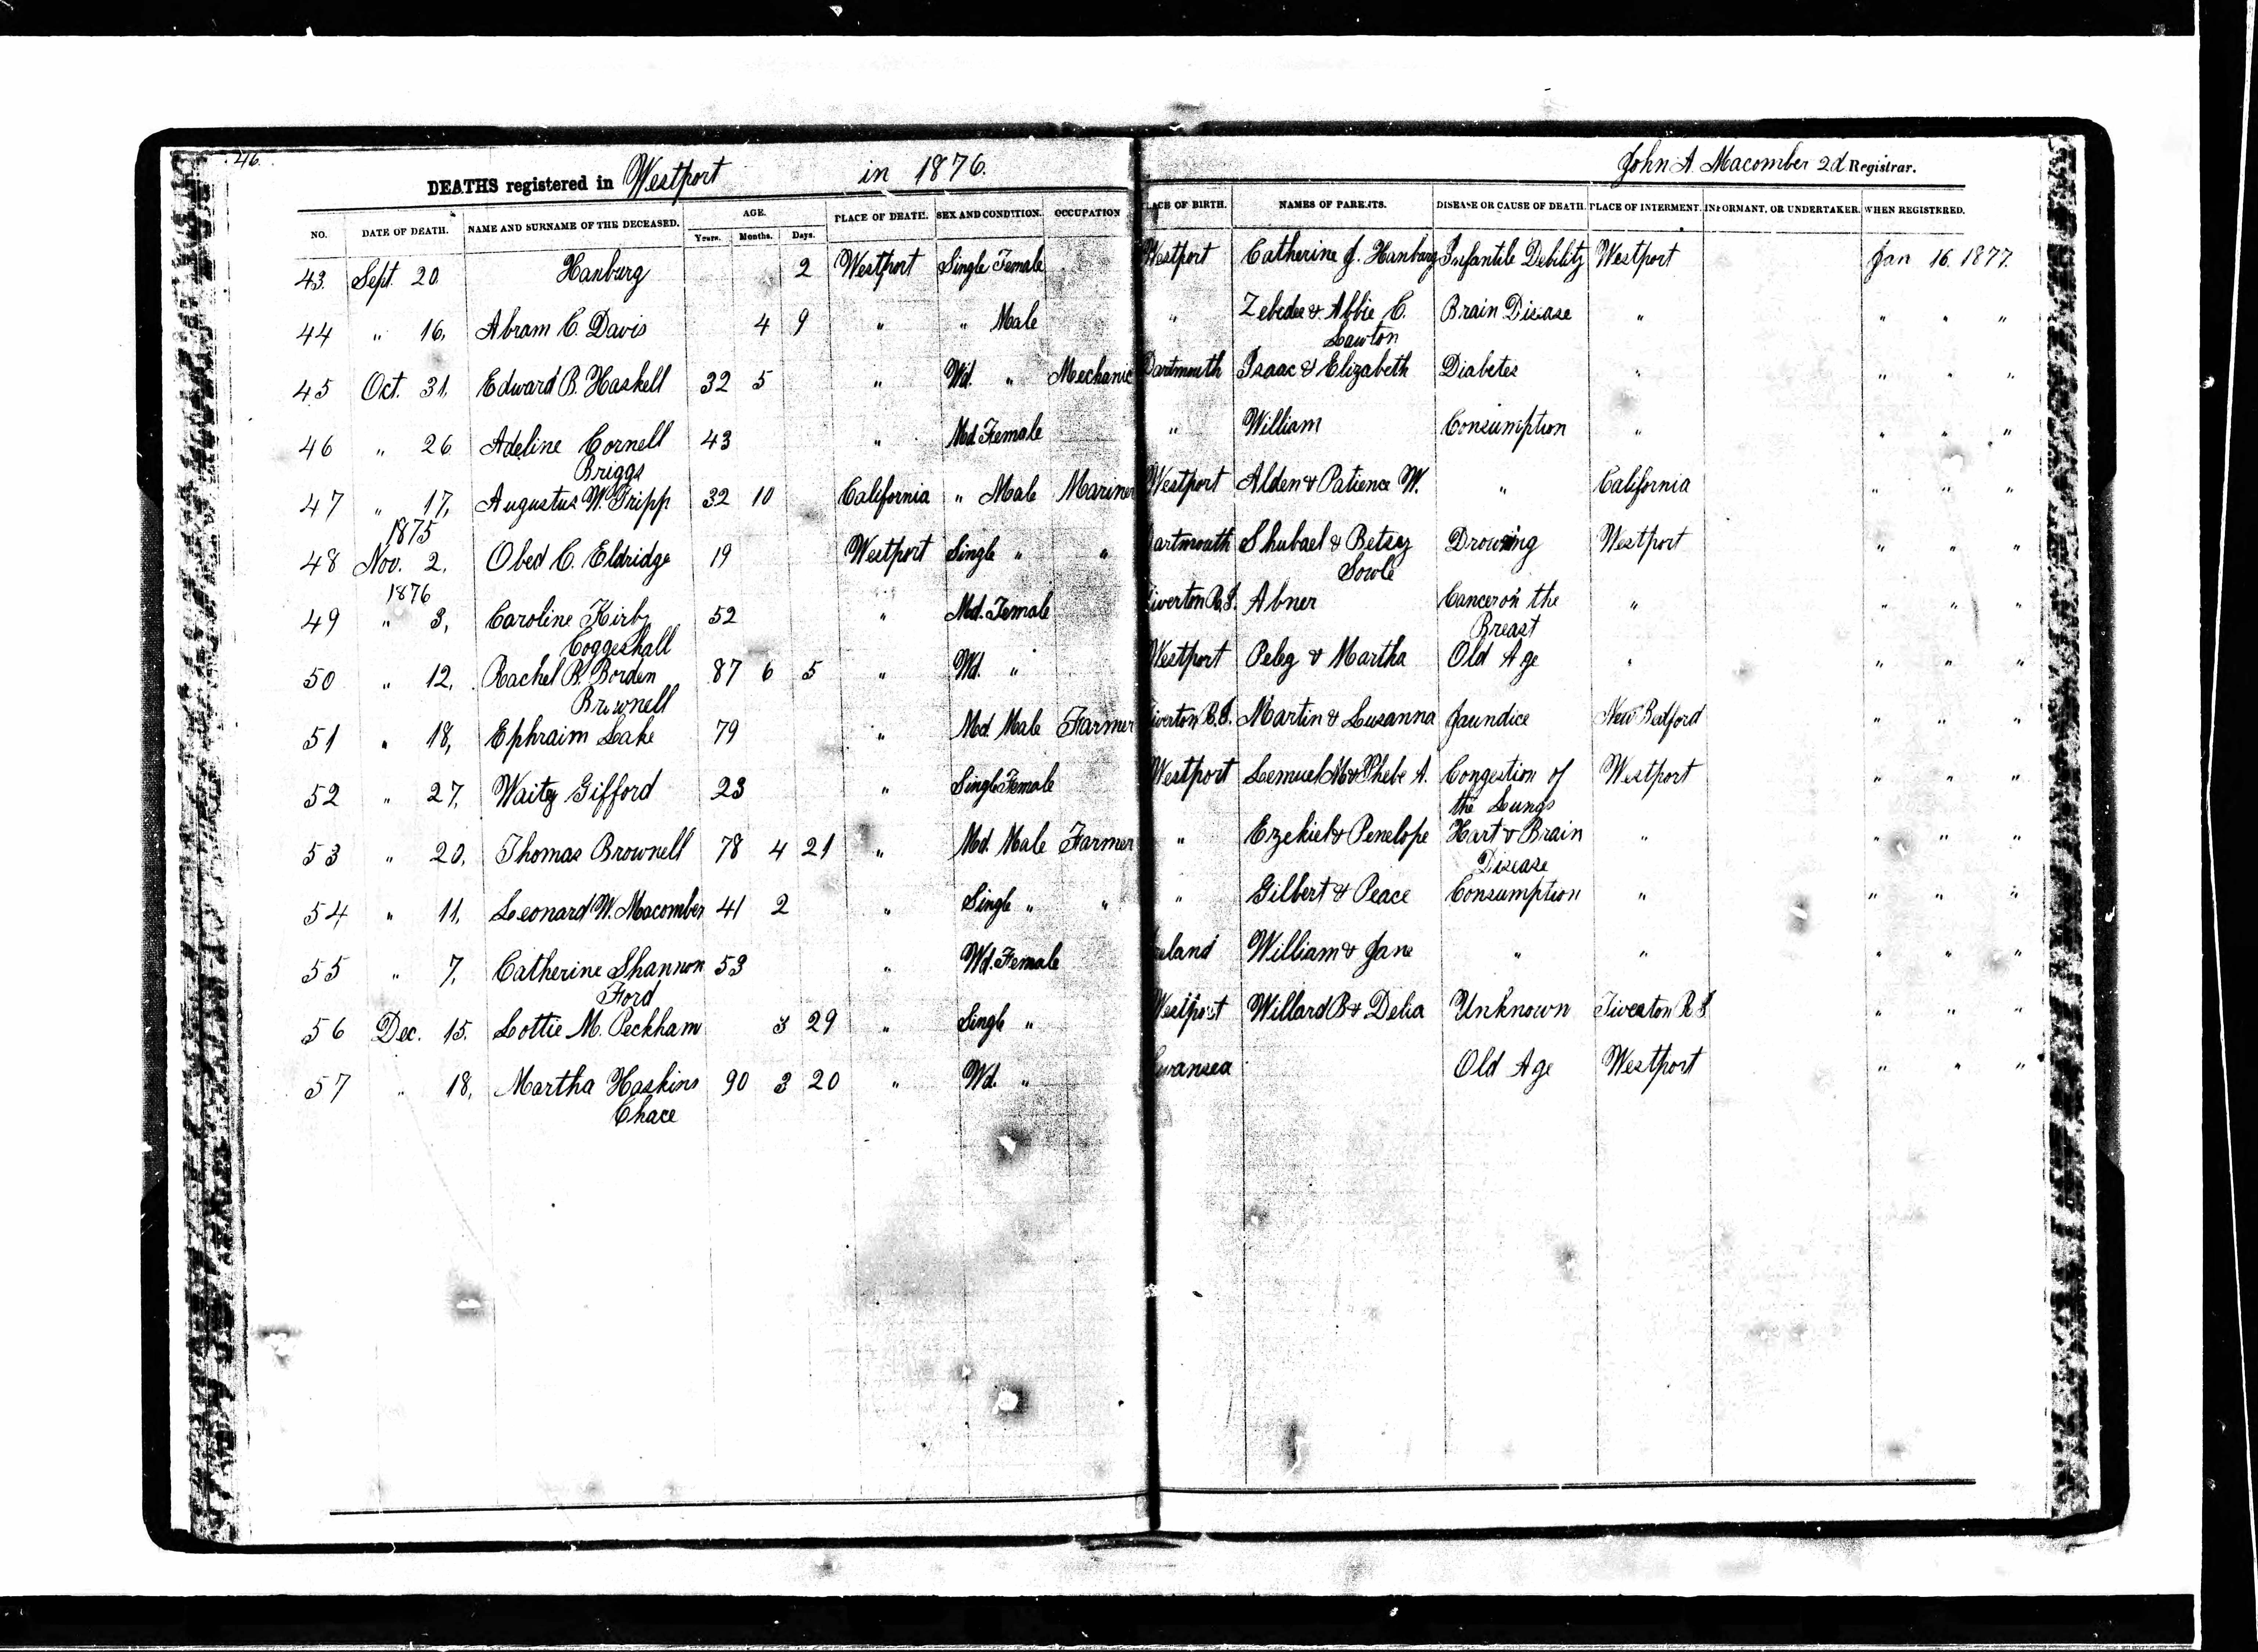 46.
DEATHS registered in Westport in 1876. John A. Macomber 2d Registrar.
NO. DATE OF DEATH. NAME AND SURNAME OF THE DECEASED. AGE. Years. Months. Days. PLACE OF DEATH. SEX AND CONDITION. OCCUPATION PLACE OF BIRTH. NAMES OF PARENTS. DISEASE OR CAUSE OF DEATH. PLACE OF INTERMENT. INFORMANT, OR UNDERTAKER. WHEN REGISTERED.
43. Sept. 20. Hanburg 2 Westport Single Female Westport Catherine J. Hanburg Infantile Debility Westport Jan 16. 1877.
44 " 16, Abram C. Davis 4 9 " " Male " Zebedee & Abbie C. Brain Disease " " " "
Lawton
45 Oct. 31, Edward B. Haskell 32 5 " Wd. " Mechanic Dartmouth Isaac & Elizabeth Diabetes " " " "
46 " 26 Adeline Cornell 43 " Md. Female " William Consumption " " " "
Briggs
47 " 17, Augustus W. Tripp 32 10 California " Male Mariner Westport Alden & Patience W. " California " " "
1875
48 Nov. 2. Obed C. Eldridge 19 Westport Single " " Dartmouth Shubael & Betsey Drowning Westport " " "
Sowle
1876
49 " 3, Caroline Kirby 52 " Md. Female Tiverton R.I. Abner Cancer on the " " " "
Coggeshall Breast
50 " 12, Rachel B. Borden 87 6 5 " Wd. " Westport Peleg & Martha Old Age " " " "
Brownell
51 " 18, Ephraim Lake 79 " Md. Male Farmer Tiverton R.I. Martin & Susanna Jaundice New Bedford " " "
52 " 27, Waity Gifford 23 " Single Female Westport Lemuel M & Phebe A. Congestion of Westport " " "
the Lungs
53 " 20, Thomas Brownell 78 4 21 " Md. Male Farmer " Ezekiel & Penelope Hart & Brain " " " "
Disease
54 " 11, Leonard W. Macomber 41 2 " Single " " " Gilbert & Peace Consumption " " " "
55 " 7, Catherine Shannon 53 " Wd. Female Ireland William & Jane " " " " "
Ford
56 Dec. 15. Lottie M. Peckham 3 29 " Single " Westport Willard B & Delia Unknown Tiverton R I " " "
57 " 18, Martha Haskins 90 3 20 " Wd. " Swansea Old Age Westport " " "
Chace